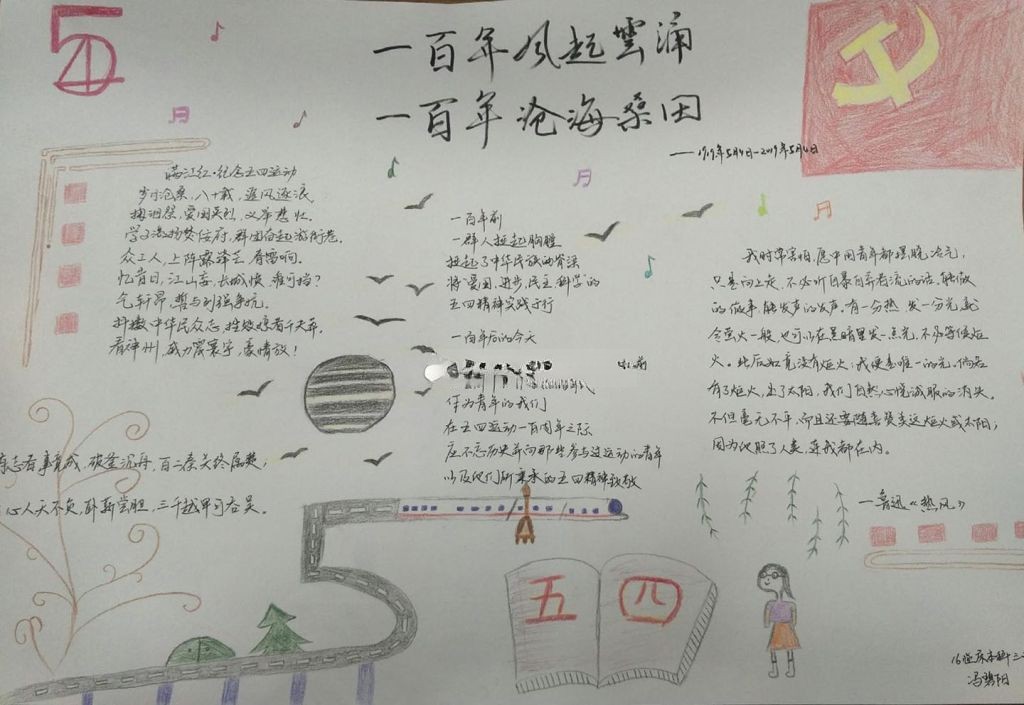 五四
一百年风起雲涌
一百年沧海桑田
——1919年5月4日-2019年5月4日
满江红·纪念五四运动
岁月沧桑,八十载,追风逐浪。
梅泪祭,爱国英烈,义举悲壮。
众工人,上阵露锋芒,春雷响。
忆昔日,江山妄,长城恨,谁可挡?
气轩昂,誓与列强争抗。
抖擞中华民众志,
看神州,威力震寰宇,豪情放!
一百年前
一群人挺起胸膛
挺起了中华民族的脊梁
将"爱国,进步,民主,科学"的
五四精神实践于行
一百年后的今天
作为青年的我们
在五四运动一百周年之际
应不忘历史并向那些参与这运动的青年
以及他们所秉承的五四精神致敬
我时常害怕,愿中国青年都摆脱冷气,
只是向上走,不必听自暴自弃者流的话。能做
的做事,能发声的发声。有一分热,发一分光,就
令萤火一般,也可以在黑暗里发一点光,不必等候炬
火。此后如竟没有炬火:我便是唯一的光。倘若
有了炬火,出了太阳,我们自然心悦诚服的消失。
不但毫无不平,而且还要随喜赞美这炬火或太阳;
因为他照了人类,连我都在内。
——鲁迅《热风》
有志者事竟成,破釜沉舟,百二秦关终属楚;
心人天不负,卧薪尝胆,三千越甲可吞吴。
五四
16临床本科三
冯骋阳